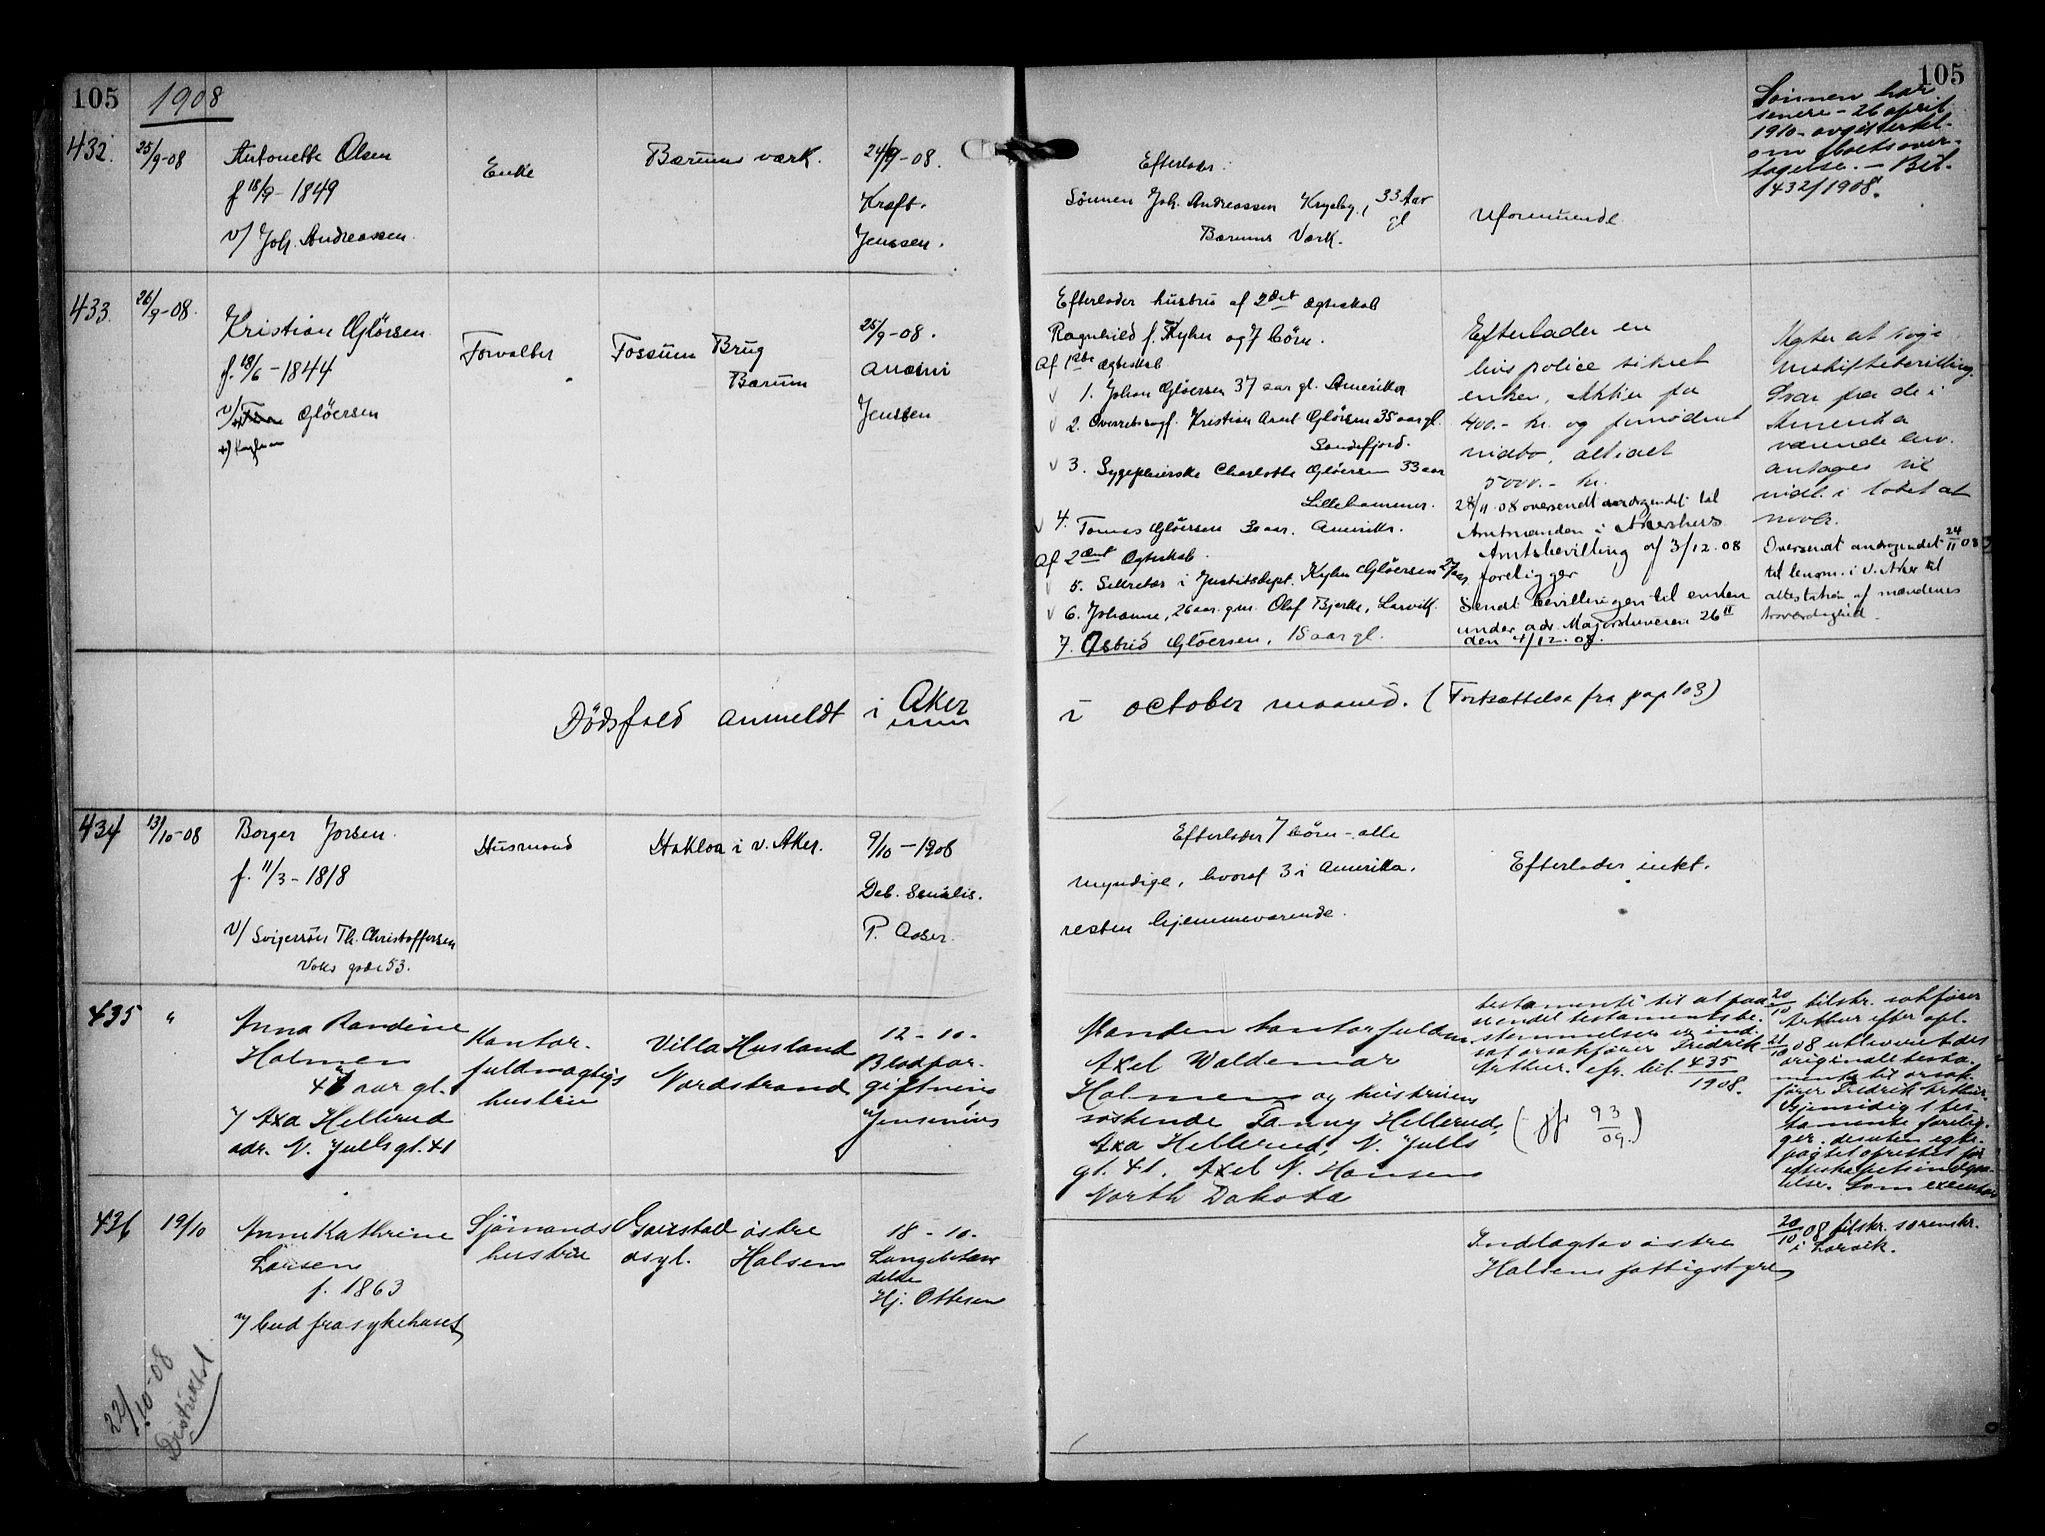 105
1908
432.
25/9-08
Antonette Olsen
f 18/9 - 1849
v/ Joh. Andreassen.
Enke
Bærums værk.
24/9-08.
Kræft.
Jenssen.
Efterlader:
Sønnen Joh. Andreassen Krysby, 33 Aar gl
Bærums Værk.
Uformuende
105
Sønnen har
senere - 26 april
1910 - avgit erkl.
om boets over-
tagelse. - Bil.
432/1908.
433.
26/9-08.
Kristian Gløersen.
f. 19/6 - 1844
v/ Gløersen
Forvalter
Fossum Brug
Bærum
25/9-08.
Jenssen
Efterlader hustru af 2det ægteskab
Ragnhild f. Kyhn og 7 børn.
Af 1ste ægteskab
1. Johan Gløersen 37 aar gl. Amerika
2. Overretssagf. Kristian Gløersen 35 aar gl.
Sandefjord.
3. Sygepleierske Charlotte Gløersen 33 aar
Lillehammer.
4. Tomas Gløersen 30 aar. Amerika.
Af 2det Ægteskab.
5. Sekretær i Justitsdept. Kyhn Gløersen 27 aar
6. Johanne, 26 aar. gm. Olaf Bjerke, Larvik.
7. Astrid Gløersen, 15 aar gl.
Efterlader en
livspolice sikret
enken, Aktier fra
400.- kr. og formodent
indbo, alt ialt
5000.- kr.
28/11 08 oversendt andragendet til
Amtmanden i Akershus
Amtsbevilling af 3/12.08
foreligger
Sendt bevillingen til enken
under adr. Majorstuveien 26 II
den 4/12.08.
Agter at søge
uskiftebevilling.
Svar fra de i
Amerika
værende arv.
antages
indt. i løbet af
novbr.
Oversendt andragendet 24/11 08
til lensm. i V. Aker til
attestation af mændenes
troværdighed.
Dødsfald anmeldt i Aker
i october maaned. (Fortsættelse fra pag 103)
434
13/10-08
Borger Jorsen.
f. 11/3 - 1818
v/ Svigersøn Th. Christoffersen
Voksgade 53.
Husmand
Hakloa i V. Aker.
9/10 - 1908
Deb. senilis.
P. Aaser.
Efterlader 7 børn - alle
myndige, hvoraf 3 i Amerika,
resten hjemmeværende.
Efterlader intet.
435
"
Anna Randine
Holmen
aar gl.
v/ Axa Hellerud
adr. N. Juelsgt. 41
Kontor-
fuldmægtigs
hustru
Villa Husland
Nordstrand
12 - 10.
Blodfor-
giftning
v/ Jensenius
Manden kontorfuldm.
Axel Waldemar
Holmen og hustruens
søskende Fanny Hellerud,
Axa Hellerud, N. Juels
gt. 41. Axel N. Hansen
North Dakota
testamente til at paa-
stemmelser er ind.
sat orsakfører Fredrik
Arthur. cfr. bil. 435/1908.
(jfr 93/09.)
20/10 tilskr. sakfører
Arthur efter opl.
21/10 08 utleveret det
originale testa-
mente til orsak-
fører Fredrik Arthur.
Gjensidigt tes-
tamente forelig-
ger. desuten egte-
pagt oprettet før
egteskapets indgaa-
else. Som executor
436
19/10
Anne Kathrine
Larsen
f. 1863
v/ bud fra sykehuset
Sjømands
hustru
Gaustad
asyl.
østre
Halsen
18 - 10.
Lungebetæn-
delse
Hj. Ottesen
Indlagt av østre
Halsens fattigstyre
20/10 08 tilskr. sorenskr.
i Larvik.
22/10-08
Distriktsl